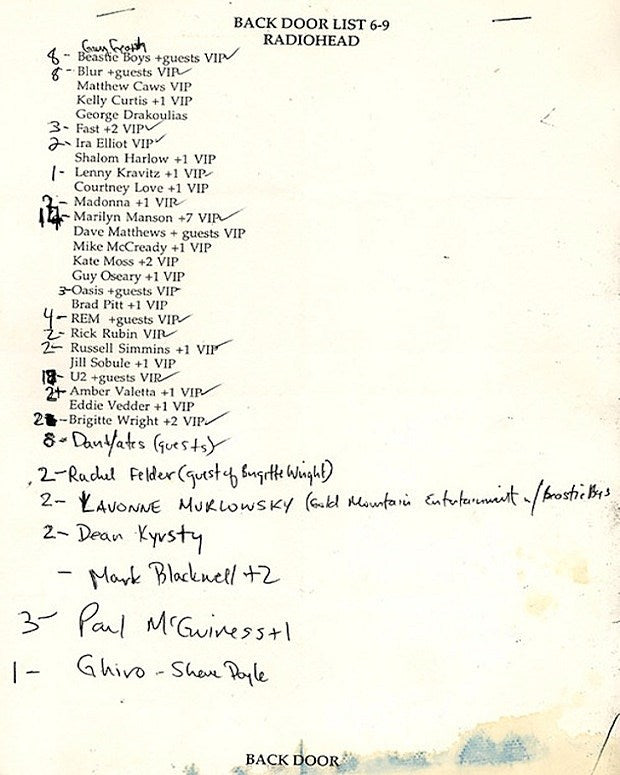 BACK DOOR LIST 6-9
RADIOHEAD
8- Beastie Boys +guests VIP✓
8- Blur +guests VIP✓
Matthew Caws VIP
Kelly Curtis +1 VIP
George Drakoulias
3- Fast +2 VIP✓
2- Ira Elliot VIP✓
Shalom Harlow +1 VIP
1- Lenny Kravitz +1 VIP✓
Courtney Love +1 VIP
Madonna +1 VIP✓
Marilyn Manson +7 VIP✓
Dave Matthews + guests VIP
Mike McCready +1 VIP
Kate Moss +2 VIP
Guy Oseary +1 VIP
3- Oasis +guests VIP
Brad Pitt +1 VIP
4- REM +guests VIP✓
2- Rick Rubin VIP✓
2- Russell Simmins +1 VIP✓
Jill Sobule +1 VIP
U2 +guests VIP✓
Amber Valetta +1 VIP✓
Eddie Vedder +1 VIP
Brigitte Wright +2 VIP✓
8- (guests)✓
2- Rachel Felder (guest of Brigitte Wright)
2- LAVONNE MURLOWSKY (Gold Mountain Entertainment w/ Beastie Boys
2- Dean Kyrsty
- Mark Blackwell +2
3- Paul McGuiness +1
1- Ghiro - Shane Doyle
BACK DOOR